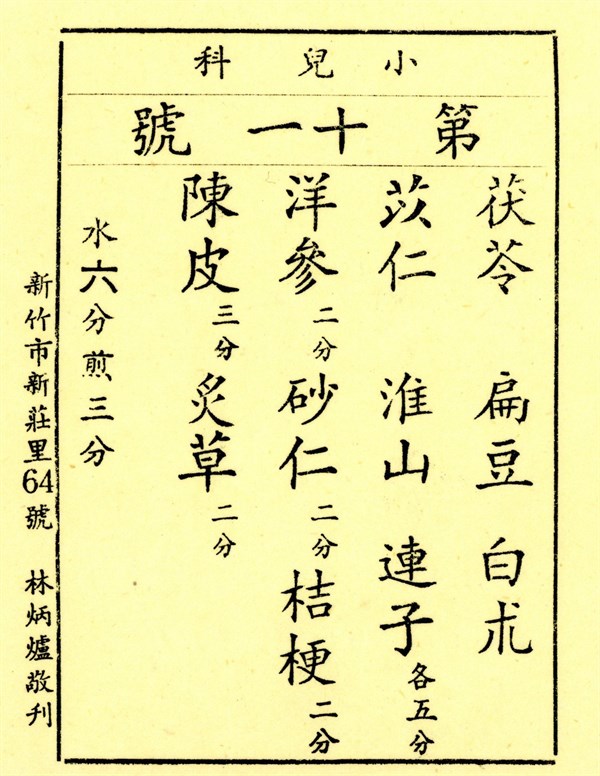 小兒科
第十一號
茯苓 扁豆 白朮
苡仁 淮山 連子各五分
洋參二分 砂仁二分 桔梗二分
陳皮三分 炙草二分
水六分煎三分
新竹市新莊里64號 林炳爐敬刊